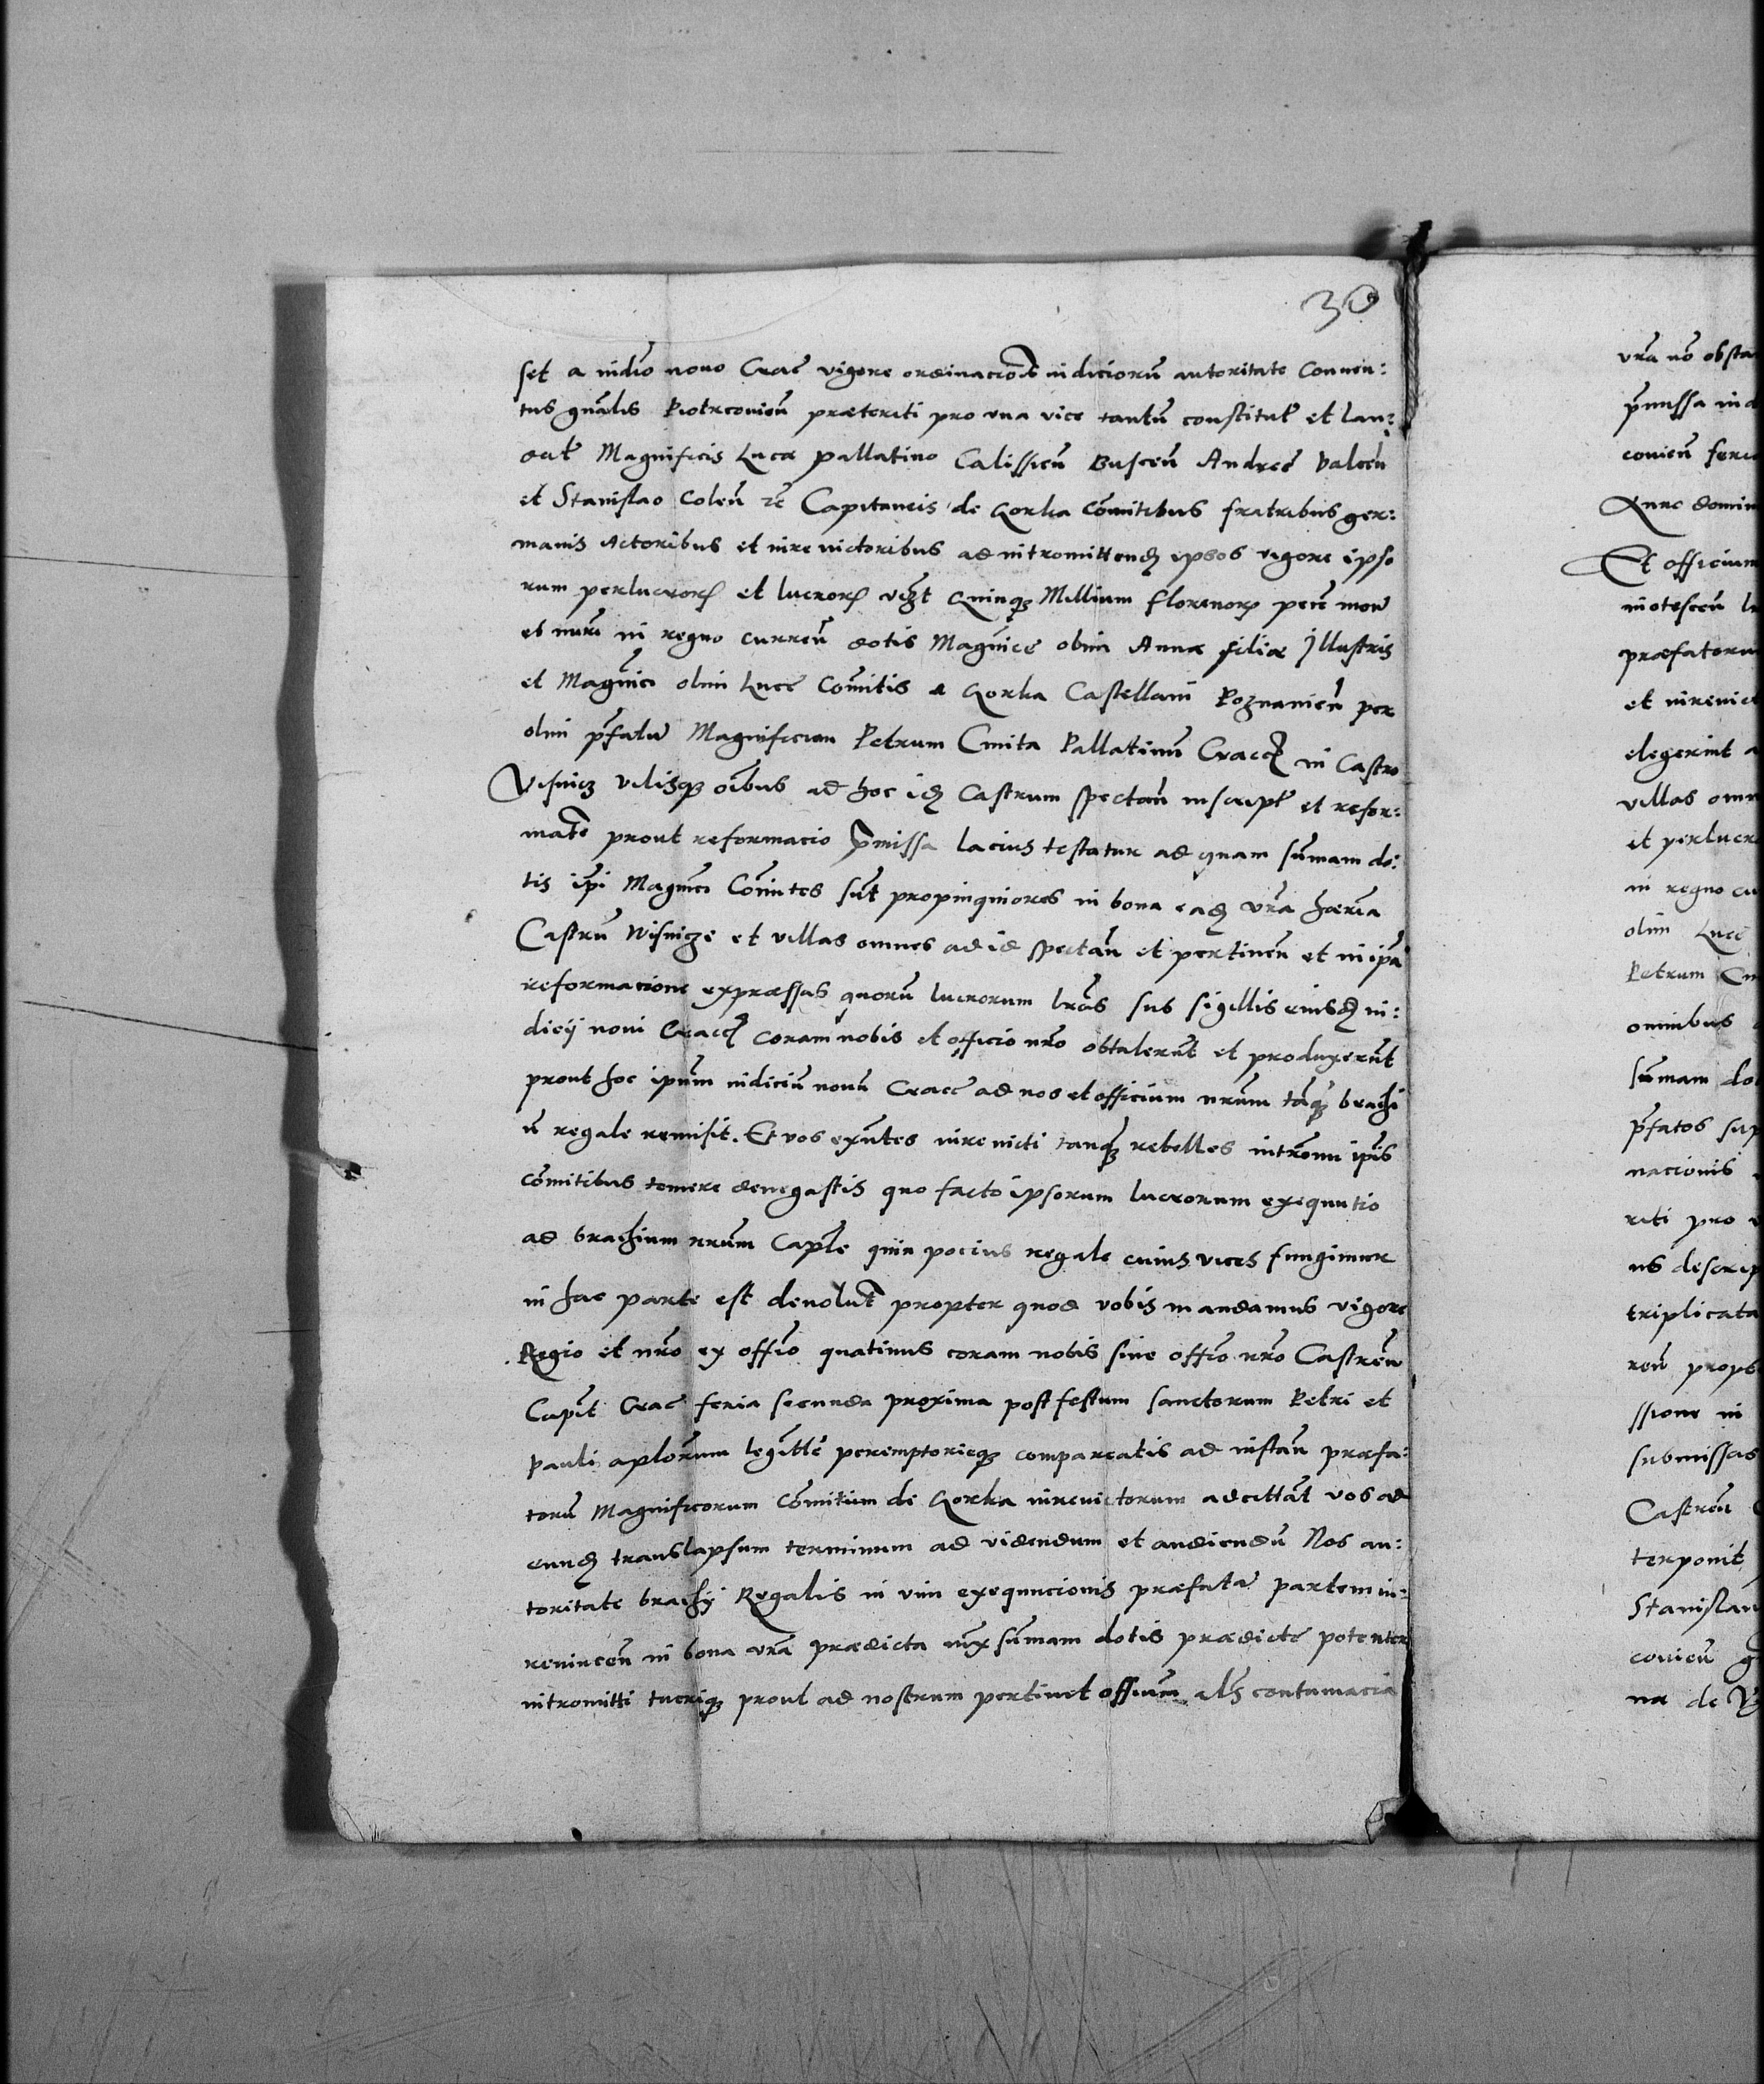 30
set a iudio nouo Crac vigore ordinacionis iudiciorum autoritate Conuen:
tus gnalis Piotrcouien praeteriti pro vna vice tantum constitut et lau:
dat Magnificis Lucae pallatino Calissien Buscen Andree Valcen
et Stanislao Colen zc Capitaneis de Gorka Comitibus fratribus ger:
manis Actoribus et iure victoribus ad intromittend ipsos vigore ipso
rum perlucror et lucror vezt Quinq Millium florenor pecc mon
et nuri in regno curren dotis Magnice olim Annae filiae Illustris
et Magnici olim Luce Comitis a Gorka Castellani Poznanien per
olim pfatu Magnificum Petrum Cmita Pallatinu Cracc in Castro
Visnicz vilisq oibus ad hoc id Castrum spectan inscript et refor:
mate prout reformacio pmissa lacius testatur ad quam sumam do:
tis ipi Magnici Comites sut propinquiores in bona ead vra haeria
Castru Wisnicze et villas omnes ad id spectan et pertinen et in ipa
reformacione expraessas quoru lucrorum lras sub sigillis eiusd iu:
dicij noui Cracc coram nobis et officio nro obtulerunt et produxerunt
prout hoc ipum iudiciu nouu Cracc ad nos et officium nrum taq brachi
u regale remisit. Et vos exntes iure victi tanq rebelles intromi ipis
comitibus temere denegastis quo facto ipsorum lucrorum exequutio
ad brachium nrum Caple quin pocius regale cuius vices fungimur
in hac parte est deuolut propter quod vobis mandamus vigore
Regio et nro ex offio quatinus coram nobis siue offio nro Castren
Capit Crac feria secunda proxima post festum sanctorum Petri et
Pauli aplorum legitte peremptorieq compareatis ad instan praefa:
toru Magnificorum Comitum de Gorka iurevictorum adcittat vos ad
eund translapsum terminum ad videndum et audiendu Nos au:
toritate brachij Regalis in vim exequucionis praefata partem iu:
reuincen in bona vra praedicta iux sumam dotis praedicte potenter
intromitti tueriq prout ad nostrum pertinet offium als contumacia
vra no obsta
pmissa iud
couien feri
Anno domin
Et officium
inotescen
praefatoru
et iurevic
elegerint a
villas omn
et perlucr
in regno cu
olim Luce
Petrum Cm
omnibus
sumam do
pfatos sup
nacionis
riti pro v
us descrip
triplicata
ren props
ssione in
submissas
Castren
terponit
Stanislau
couien g
na de